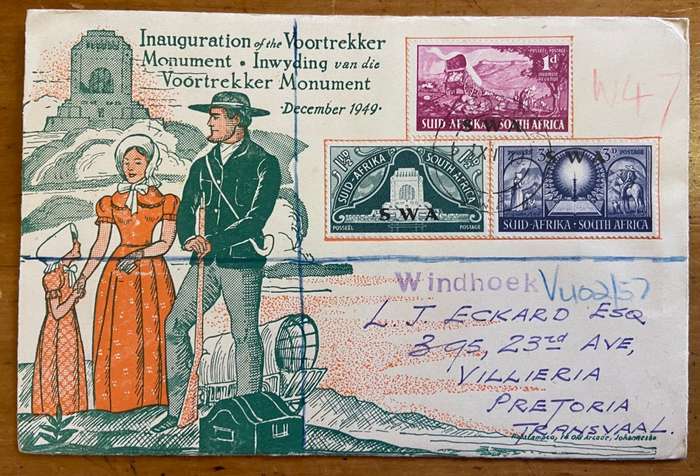 Inauguration of the Voortrekker
Monument • Inwyding van die
Voortrekker Monument
•December 1949•
POSSEEL POSTAGE
1d
SUID-AFRIKA SOUTH AFRICA
SWA
1½D 1½D
SUID-AFRIKA SOUTH AFRICA
SWA
POSSEEL POSTAGE
3D 3D POSTAGE
SWA
SUID-AFRIKA·SOUTH AFRICA
W47
Windhoek
L J ECKARD ESQ
395, 23rd AVE,
VILLIERIA
PRETORIA
TRANSVAAL.